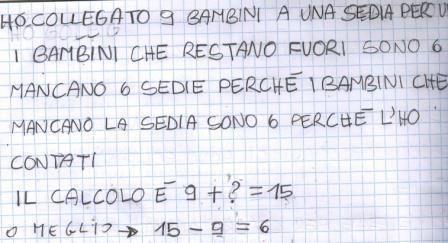 HO COLLEGATO 9 BAMBINI A UNA SEDIA PER U
I BAMBINI CHE RESTANO FUORI SONO 6
MANCANO 6 SEDIE PERCHÉ I BAMBINI CHE
MANCANO LA SEDIA SONO 6 PERCHÉ L'HO
CONTATI
IL CALCOLO É 9 + ? = 15
O MEGLIO → 15 - 9 = 6